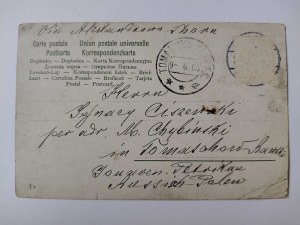 Via Alexandrowo Thorn
Carte postale Union postale universelle
Postkarte Korrespondenzkarte
Dopisnice - Dopisnica - Karta Korrespondencyjna
Levelező-Lap - Korrespondent listek - Brief-
kaart - Cartolina Postale - Brefkort - Tarjeta
Postal - Postcard.
TOMA
Herrn
Ignacy Ciszewski
per adr. M. Chybinski
in Tomaschow-Rawsk
Gouvern. Petrokau
Russisch Polen